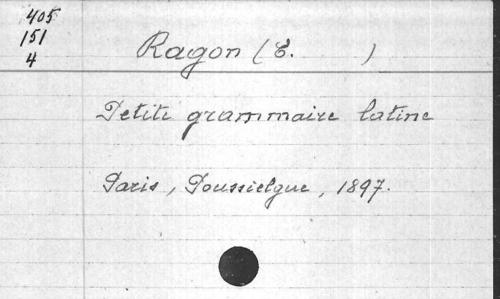 405
151
4
Ragon (E. )
Petite grammaire latine
Paris, Poussielgue, 1897.